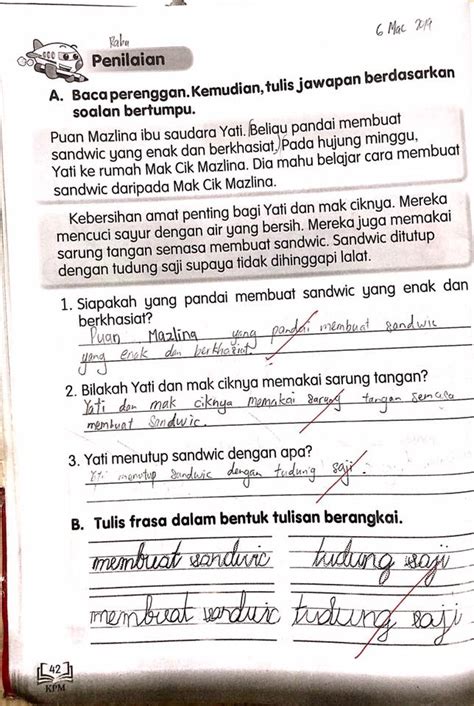 6 Mac 2019
Rabu
Penilaian
A. Baca perenggan. Kemudian, tulis jawapan berdasarkan
soalan bertumpu.
Puan Mazlina ibu saudara Yati. Beliau pandai membuat
sandwic yang enak dan berkhasiat. Pada hujung minggu,
Yati ke rumah Mak Cik Mazlina. Dia mahu belajar cara membuat
sandwic daripada Mak Cik Mazlina.
Kebersihan amat penting bagi Yati dan mak ciknya. Mereka
mencuci sayur dengan air yang bersih. Mereka juga memakai
sarung tangan semasa membuat sandwic. Sandwic ditutup
dengan tudung saji supaya tidak dihinggapi lalat.
1. Siapakah yang pandai membuat sandwic yang enak dan
berkhasiat?
Puan Mazlina yang pandai membuat sandwic
yang enak dan berkhasiat.
2. Bilakah Yati dan mak ciknya memakai sarung tangan?
Yati dan mak ciknya memakai sarung tangan semasa
membuat Sandwic.
3. Yati menutup sandwic dengan apa?
Yati menutup sandwic dengan tudung saji.
B. Tulis frasa dalam bentuk tulisan berangkai.
membuat sandwic tudung saji
membuat sandwic tudung saji
42
KPM